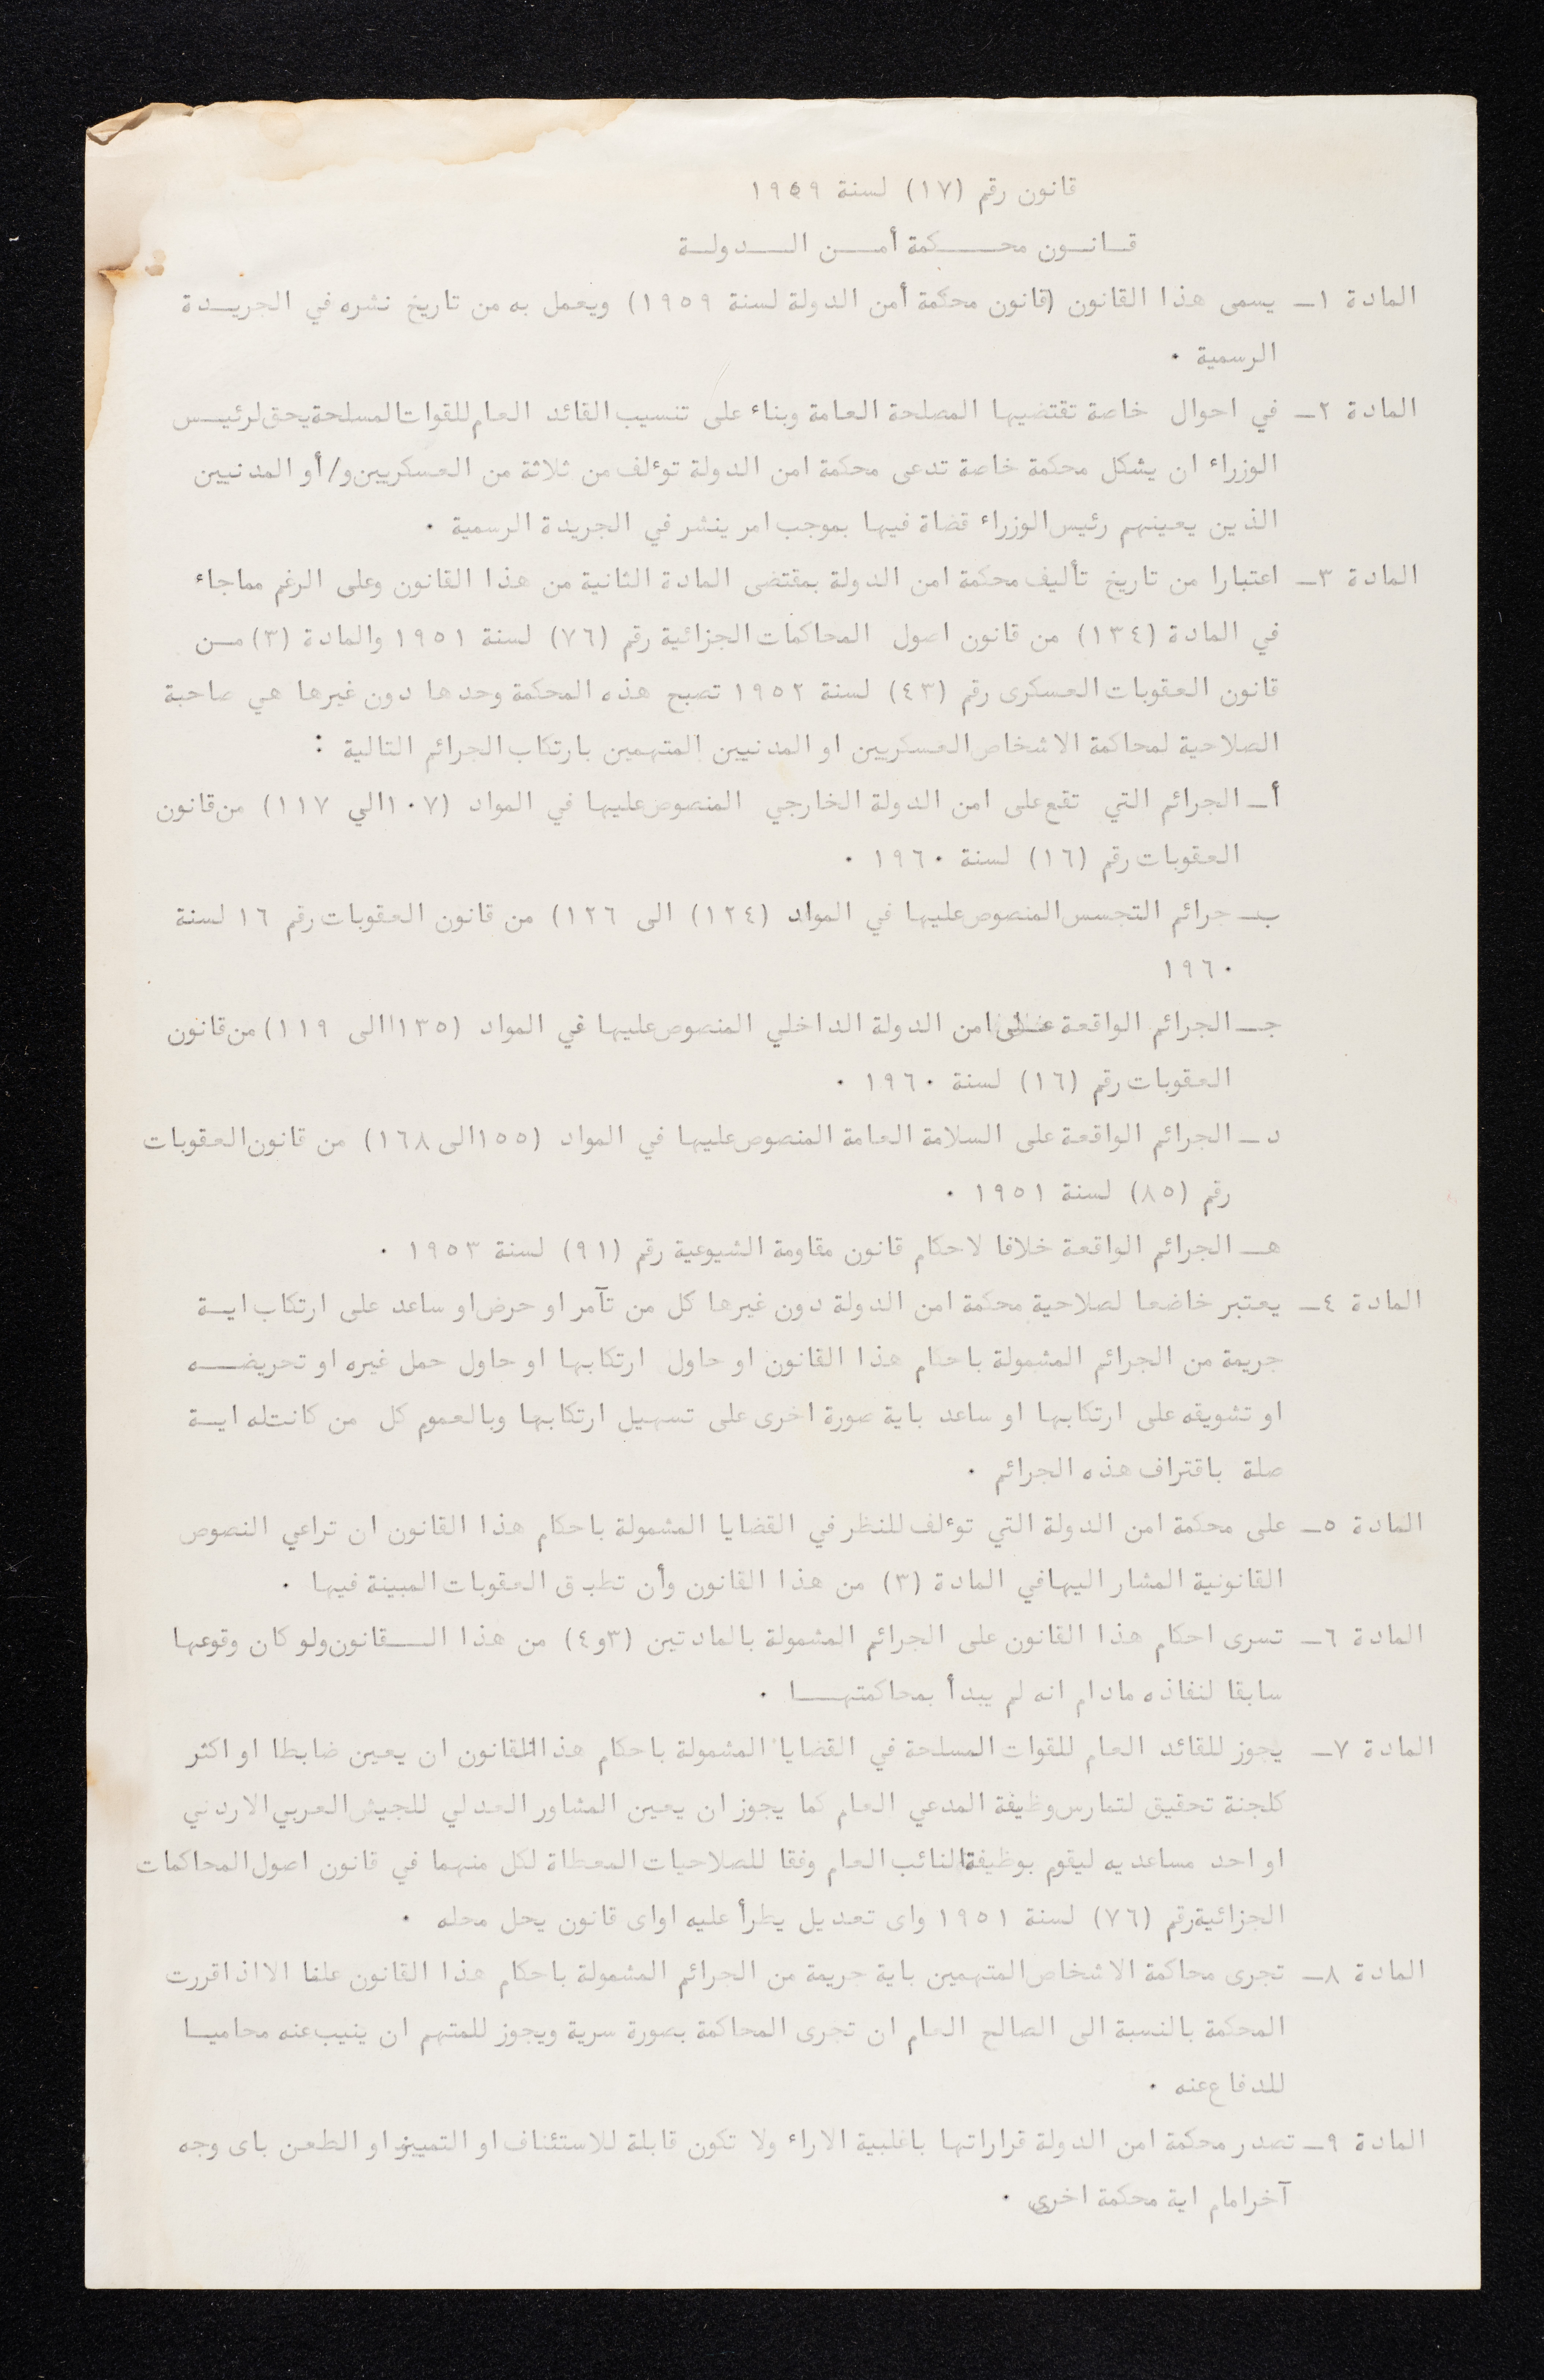 قانون رقم (١٧) لسنة ١٩٥٩
قـانـون محـــكمة أمــن الـــدولـة
المادة ١ــ يسمى هذا القانون (قانون محكمة أمن الدولة لسنة ١٩٥٩) ويعمل به من تاريخ نشره في الجريــدة
الرسمية ٠
المادة ٢ــ في احوال خاصة تقتضيها المصلحة العامة وبناء على تنسيب القائد العام للقوات المسلحة يحق لرئيــس
الوزراء ان يشكل محكمة خاصة تدعى محكمة امن الدولة توءلف من ثلاثة من العسكريين و/أو المدنيين
الذين يعينهم رئيس الوزراء قضاة فيها بموجب امر ينشر في الجريدة الرسمية ٠
المادة ٣ــ اعتبارا من تاريخ تأليف محكمة امن الدولة بمقتضى المادة الثانية من هذا القانون وعلى الرغم مماجاء
في المادة (١٣٤) من قانون اصول المحاكمات الجزائية رقم (٧٦) لسنة ١٩٥١ والمادة (٣) مــن
قانون العقوبات العسكرى رقم (٤٣) لسنة ١٩٥٢ تصبح هذه المحكمة وحدها دون غيرها هي صاحبة
الصلاحية لمحاكمة الاشخاص العسكريين او المدنيين المتهمين بارتكاب الجرائم التالية :
أــ الجرائم التي تقع على امن الدولة الخارجي المنصوص عليها في المواد (١٠٧ الي ١١٧) من قانون
العقوبات رقم (١٦) لسنة ١٩٦٠ ٠
بــ جرائم التجسس المنصوص عليها في المواد (١٢٤) الى ١٢٦) من قانون العقوبات رقم ١٦ لسنة
١٩٦٠
جــ الجرائم الواقعة على امن الدولة الداخلي المنصوص عليها في المواد (١٣٥ الى ١١٩) من قانون
العقوبات رقم (١٦) لسنة ١٩٦٠ ٠
د ــ الجرائم الواقعة على السلامة العامة المنصوص عليها في المواد (١٥٥ الى ١٦٨) من قانون العقوبات
رقم (٨٥) لسنة ١٩٥١ ٠
هــ الجرائم الواقعة خلافا لاحكام قانون مقاومة الشيوعية رقم (٩١) لسنة ١٩٥٣ ٠
المادة ٤ــ يعتبر خاضعا لصلاحية محكمة امن الدولة دون غيرها كل من تآمر او حرض او ساعد على ارتكاب ايــة
جريمة من الجرائم المشمولة باحكام هذا القانون او حاول ارتكابها او حاول حمل غيره او تحريضــه
او تشويقه على ارتكابها او ساعد باية صورة اخرى على تسهيل ارتكابها وبالعموم كل من كانت له ايــة
صلة باقتراف هذه الجرائم ٠
المادة ٥ــ على محكمة امن الدولة التي توءلف للنظر في القضايا المشمولة باحكام هذا القانون ان تراعي النصوص
القانونية المشار اليها في المادة (٣) من هذا القانون وأن تطبق العقوبات المبينة فيها ٠
المادة ٦ــ تسرى احكام هذا القانون على الجرائم المشمولة بالمادتين (٣و٤) من هذا الــقانون ولو كان وقوعها
سابقا لنفاذه مادام انه لم يبدأ بمحاكمتهــا ٠
المادة ٧ــ يجوز للقائد العام للقوات المسلحة في القضايا المشمولة باحكام هذا القانون ان يعين ضابطا او اكثر
كلجنة تحقيق لتمارس وظيفة المدعي العام كما يجوز ان يعين المشاور العدلي للجيش العربي الاردني
او احد مساعديه ليقوم بوظيفة النائب العام وفقا للصلاحيات المعطاة لكل منهما في قانون اصول المحاكمات
الجزائية رقم (٧٦) لسنة ١٩٥١ واى تعديل يطرأ عليه اواى قانون يحل محله ٠
المادة ٨ــ تجرى محاكمة الاشخاص المتهمين باية جريمة من الجرائم المشمولة باحكام هذا القانون علنا الا اذا قررت
المحكمة بالنسبة الى الصالح العام ان تجرى المحاكمة بصورة سرية ويجوز للمتهم ان ينيب عنه محاميــا
للدفاع عنه ٠
المادة ٩ــ تصدر محكمة امن الدولة قراراتها باغلبية الاراء ولا تكون قابلة للاستئناف او التمييز او الطعن باى وجه
آخر امام اية محكمة اخرى ٠